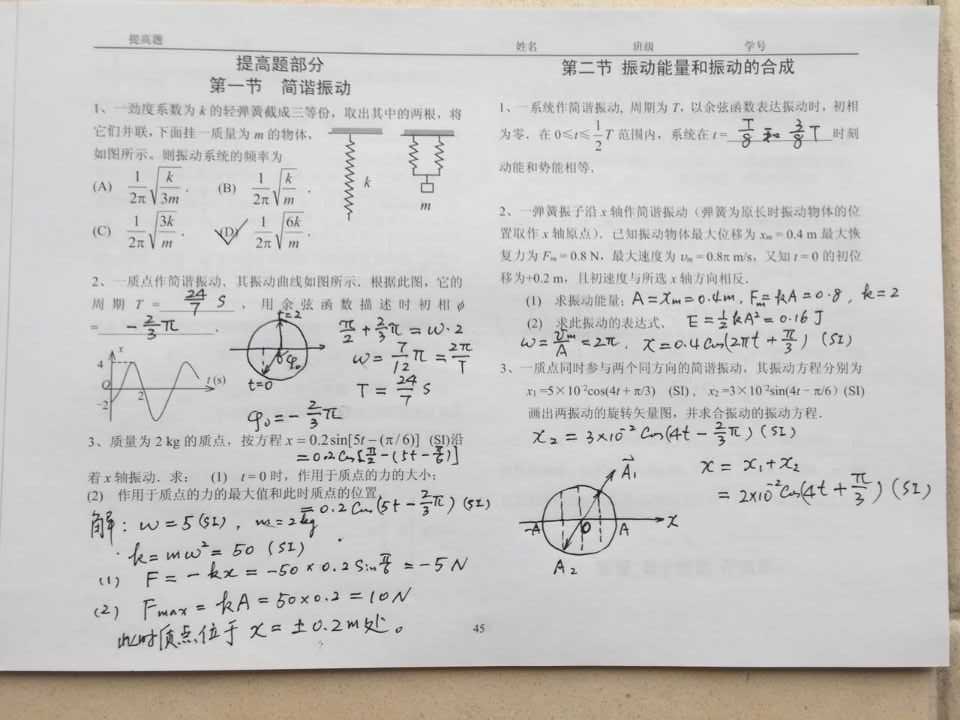 提高题
提高题部分
第一节 简谐振动
1、一劲度系数为 k 的轻弹簧截成三等份，取出其中的两根，将
它们并联，下面挂一质量为 m 的物体，
如图所示。则振动系统的频率为
k
m
(A) 1/2π √(k/3m) . (B) 1/2π √(k/m) .
(C) 1/2π √(3k/m) . (D) 1/2π √(6k/m) .
2、一质点作简谐振动．其振动曲线如图所示．根据此图，它的
周期 T = 24/7 S ，用余弦函数描述时初相 ϕ
= -2/3 π .
x
4
O
-2
2
t (s)
t=2
φ₀
t=0
π/2 + 2/3 π = ω·2
ω = 7/12 π = 2π/T
T = 24/7 s
φ₀ = -2/3 π
3、质量为 2 kg 的质点，按方程 x = 0.2sin[5t-(π/6)] (SI)沿
= 0.2 cos[π/2 - (5t - π/6)]
着 x 轴振动．求： (1) t = 0 时，作用于质点的力的大小；
(2) 作用于质点的力的最大值和此时质点的位置．
= 0.2 cos(5t - 2/3 π) (SI)
解：ω = 5 (SI) , m = 2kg
k = mω² = 50 (SI)
(1) F = -kx = -50 × 0.2 sin π/6 = -5 N
(2) Fmax = kA = 50×0.2 = 10N
此时质点位于 x = ±0.2m处。
45
姓名 班级 学号
第二节 振动能量和振动的合成
1、一系统作简谐振动, 周期为 T，以余弦函数表达振动时，初相
为零．在 0≤t≤ 1/2 T 范围内，系统在 t = T/8 和 3/8 T 时刻
动能和势能相等．
2、一弹簧振子沿 x 轴作简谐振动（弹簧为原长时振动物体的位
置取作 x 轴原点）．已知振动物体最大位移为 xm = 0.4 m 最大恢
复力为 Fm = 0.8 N，最大速度为 υm = 0.8π m/s，又知 t = 0 的初位
移为+0.2 m，且初速度与所选 x 轴方向相反．
(1) 求振动能量；A = xm = 0.4m, Fm = kA = 0.8, k = 2
(2) 求此振动的表达式． E = ½kA² = 0.16 J
ω = υm/A = 2π, x = 0.4 cos(2πt + π/3) (SI)
3、一质点同时参与两个同方向的简谐振动，其振动方程分别为
x1 =5×10⁻²cos(4t + π/3) (SI) , x2 =3×10⁻²sin(4t - π/6) (SI)
画出两振动的旋转矢量图，并求合振动的振动方程．
x₂ = 3×10⁻² cos(4t - 2/3 π) (SI)
A₁
-A
O
A
x
A₂
x = x₁ + x₂
= 2×10⁻² cos(4t + π/3) (SI)